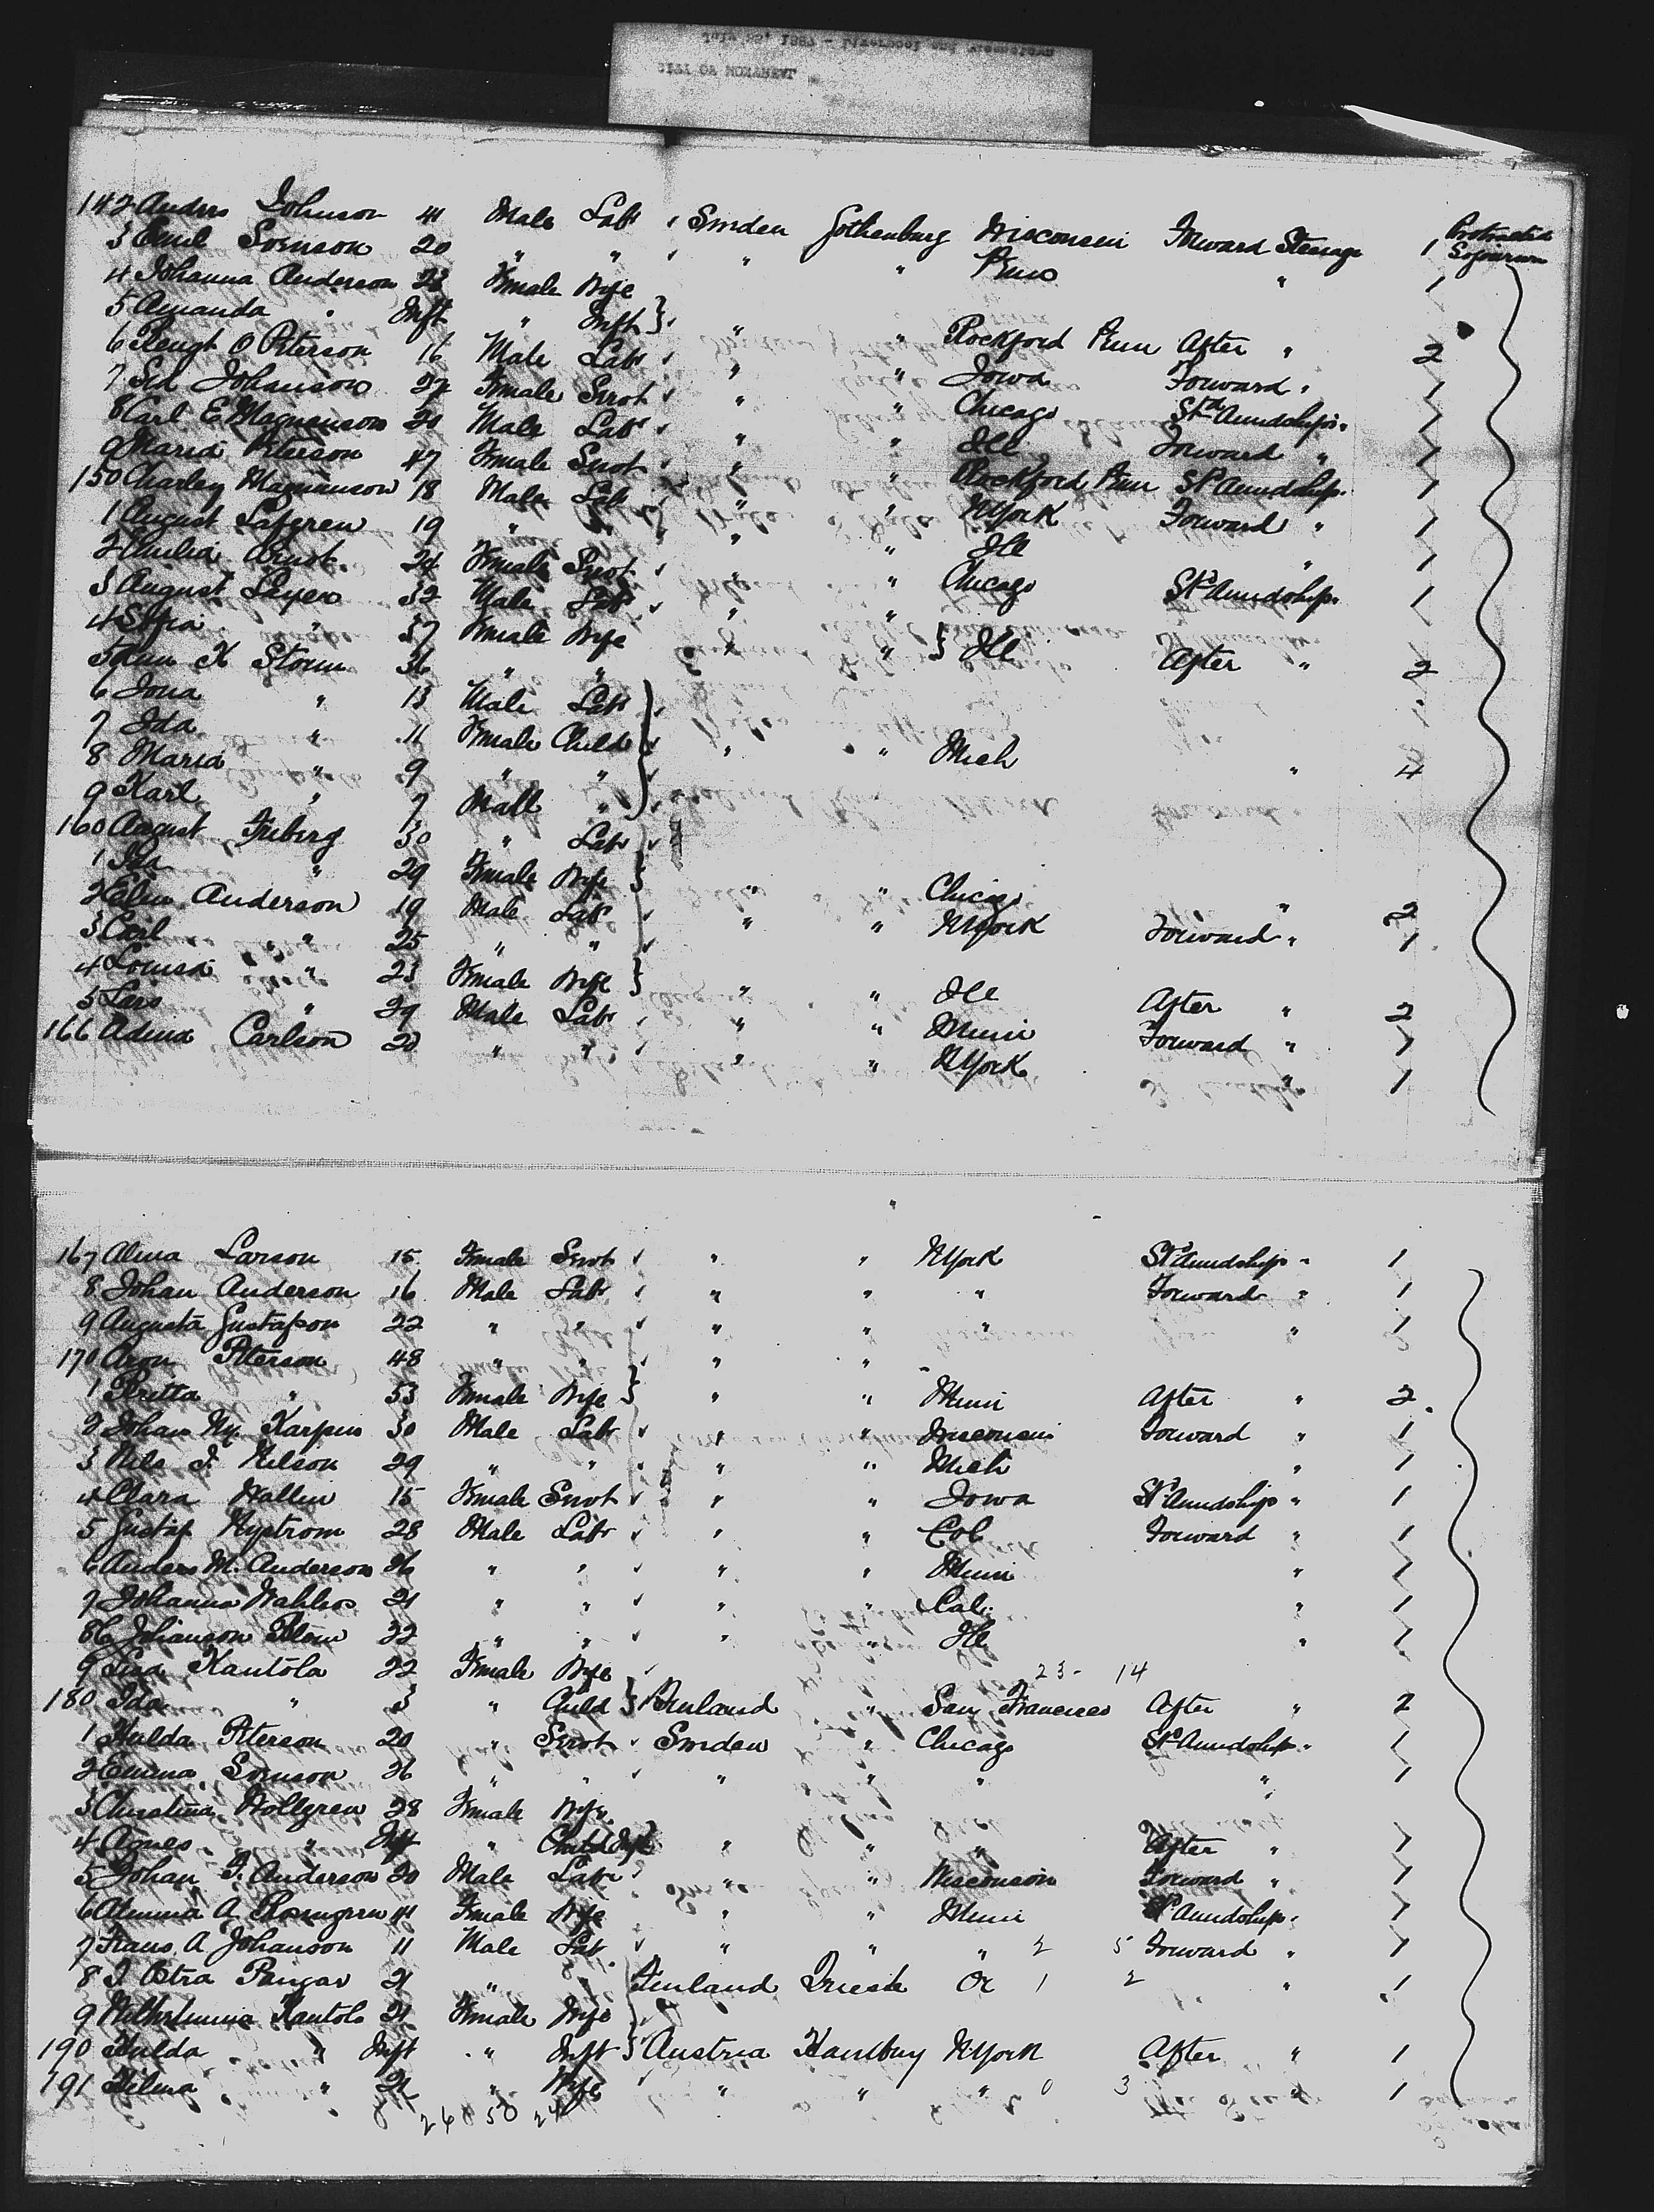 142 Anders Johnson 41 Male Labr Sweden Gothenburg Wisconsin Forward Steerage 1 Protracted Sojourn
3 Emil Svenson 20 " " " " Penn " 1
4 Johanna Anderson 23 Female Wife
5 Amanda " Inft " Inft } " " Rockford Penn After " 2
6 Bengt O Peterson 16 Male Labr " " Iowa Forward " 1
7 Sed Johanson 27 Female Servt " " Chicago Std Amidships " 1
8 Carl E Magnanson 20 Male Labr " " Ill Forward " 1
9 Maria Peterson 47 Female Servt " " Rockford Penn Std Amidship " 1
150 Charley Magnanson 18 Male Labr " " N York Forward " 1
1 August Lafgren 19 " " " " Ill " 1
2 Ernst 24 Female Servt " " Chicago Std Amidship " 1
3 August 32 Male Labr " "
4 Sofia " 37 Female Wife " " } Ill After " 2
5 K Storm 36 " "
6 Jona " 13 Male Labr
7 Ida " 11 Female Child " " Mich " 4
8 Maria " 9 " "
9 Karl " 7 Male "
160 August Friberg 30 " Labr
1 Ida " 29 Female Wife } " " Chicago " 2
2 Anderson 19 Male Labr " " N York Forward " 1
3 Carl " 25 " "
4 Louisa " 23 Female Wife } " " Ill After " 2
5 Lars " 29 Male Labr " " Minn Forward " 1
166 Adina Carlson 20 " " " " N York " 1
167 Alma Larson 15 Female Servt " " N York Std Amidships " 1
8 Johan Anderson 16 Male Labr " " " Forward " 1
9 Augusta Gustafson 22 " " " " " " 1
170 Aron Peterson 48 " " " "
1 Britta " 53 Female Wife } " " Minn After " 2
2 Johan Ny. Karpus 30 Male Labr " " Wisconsin Forward " 1
3 Nils J. Nilson 29 " " " " Mich " 1
4 Clara Hallin 15 Female Servt " " Iowa Std Amidship " 1
5 Gustaf Nystrom 28 Male Labr " " Col Forward " 1
6 Anders M. Anderson 26 " " " " Minn " 1
7 Johanna 21 " " " " Cal. " 1
8 Johanson 22 " " " " Ill " 1
9 Lisa Kantola 22 Female Wife 23 - 14
180 Ida " 3 " Child } Finland " San Francisco After " 2
1 Hulda Peterson 20 " Servt Sweden " Chicago Std Amidship " 1
2 Emma Svenson 26 " " " " " " 1
3 Christina Hollgren 28 Female Wife
4 Agnes " Inft " Child Inft } " " " After " 1
5 Johan F. Anderson 20 Male Labr " " Wisconsin Forward " 1
6 A 41 Female Wife " " Minn Std Amidship " 1
7 Frans A Johanson 11 Male Labr " " " 2 5 Forward " 1
8 21 " " Finland Or 1 2 " 1
9 Wilhelmina Kantola 21 Female Wife
190 Hulda " Inft " Inft } Austria Hamburg N York After " 1
191 Hilma " 21 " Wife " " " 0 3 " 1
26 50 24